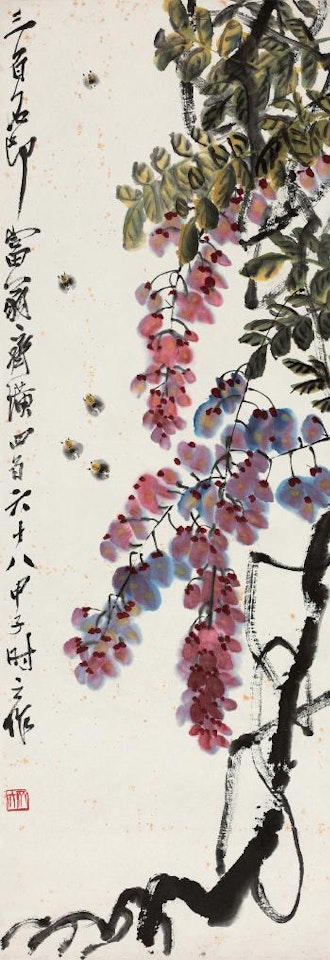 三百石印富翁齊璜四百六十八甲子時之作